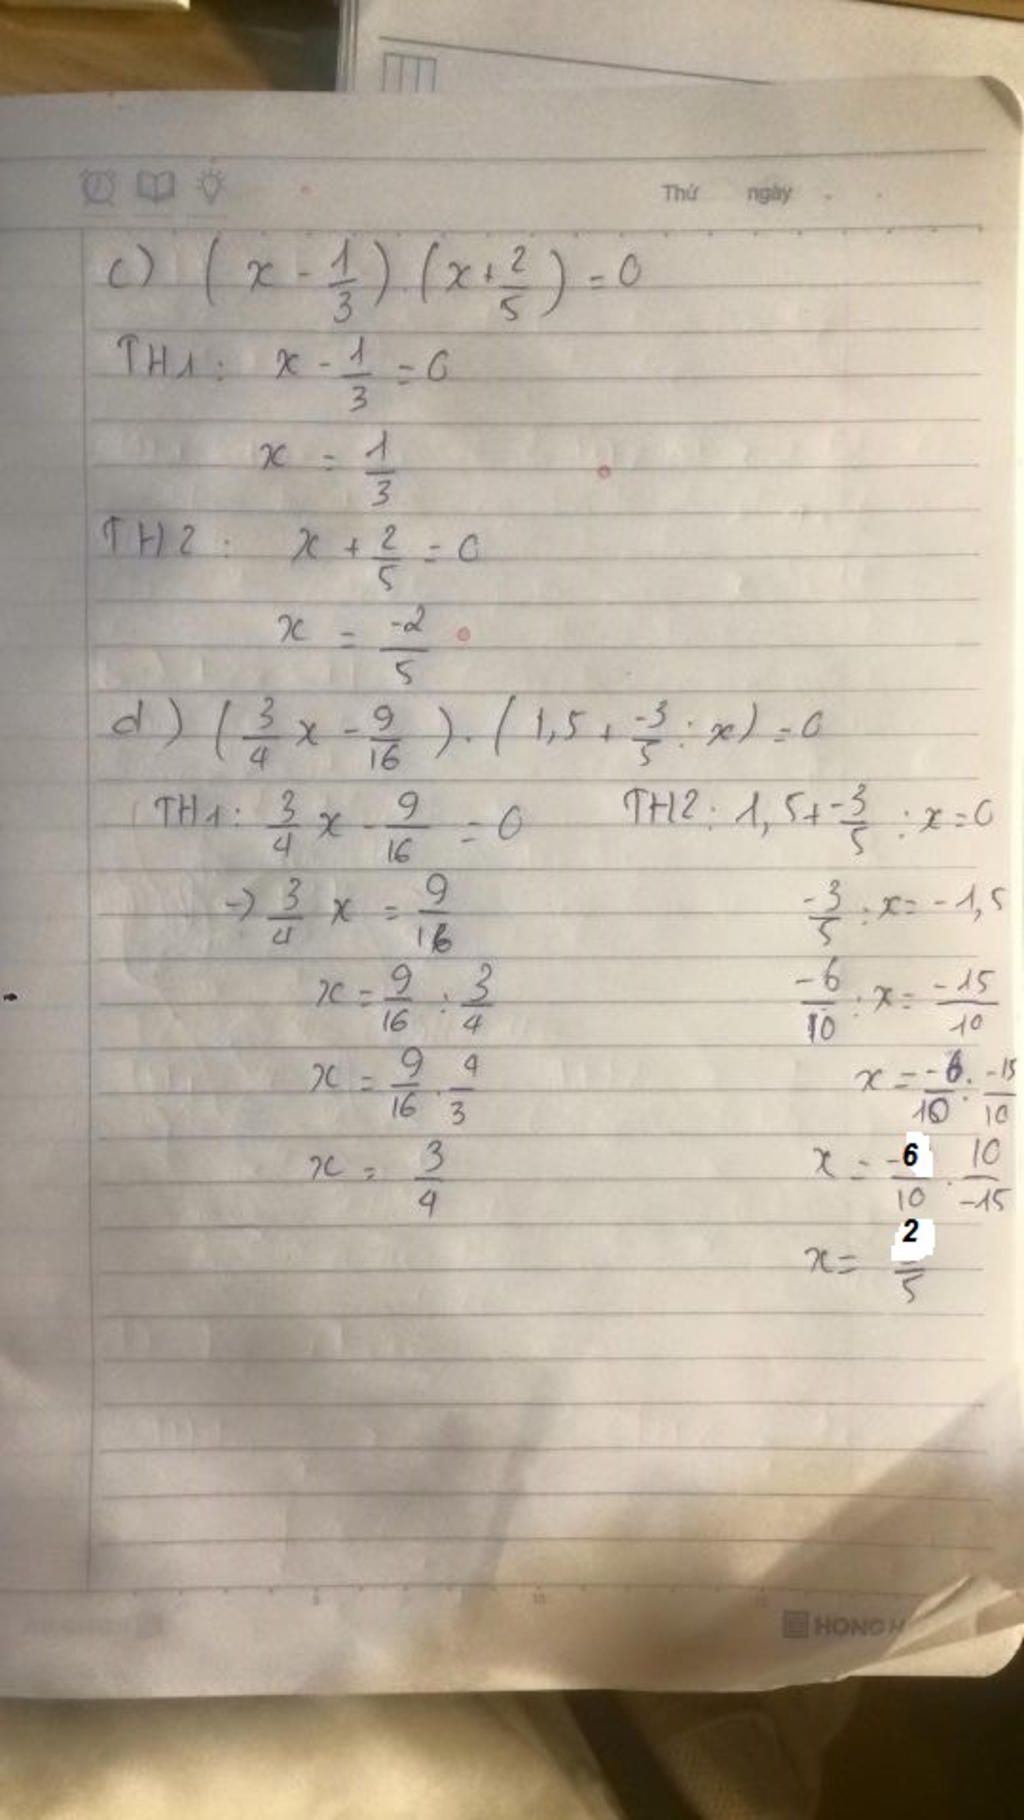 Thứ ngày
c) (x - 1/3).(x + 2/5) = 0
TH1: x - 1/3 = 0
x = 1/3
TH2: x + 2/5 = 0
x = -2/5
d) (3/4 x - 9/16).(1,5 + -3/5 : x) = 0
TH1: 3/4 x - 9/16 = 0
-> 3/4 x = 9/16
x = 9/16 : 3/4
x = 9/16 . 4/3
x = 3/4
TH2: 1,5 + -3/5 : x = 0
-3/5 : x = -1,5
-6/10 : x = -15/10
x = -6/10 : -15/10
x = -6/10 . 10/-15
x = 2/5
HONG H